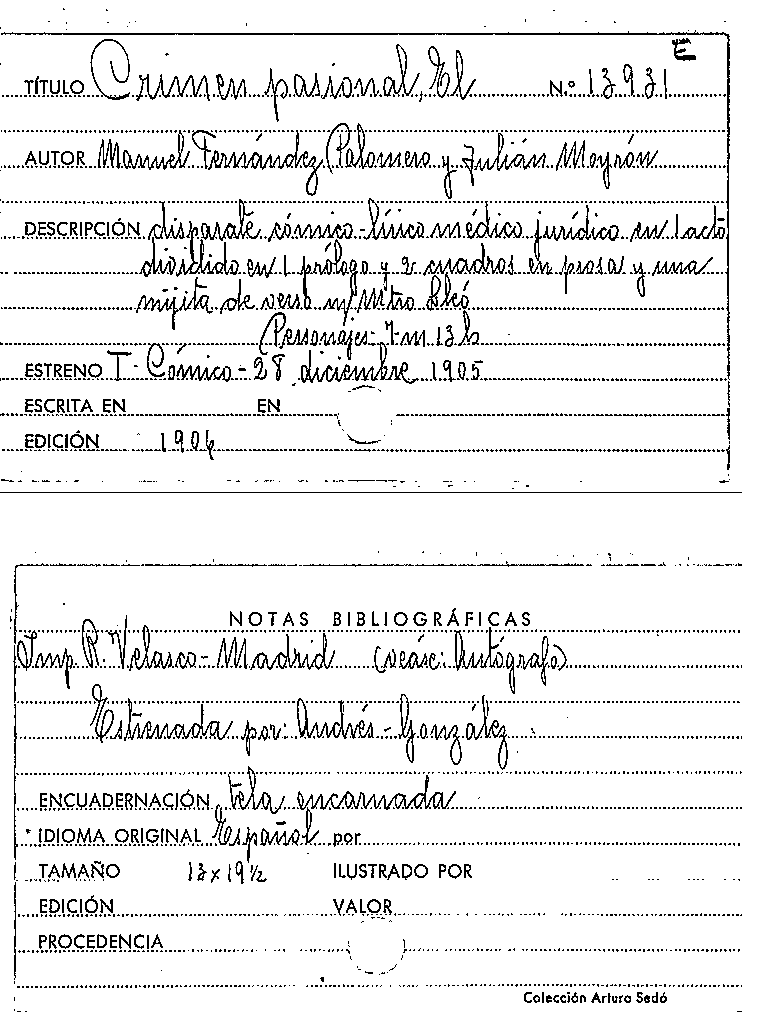 E
TÍTULO Crimen pasional, El N.º 13931
AUTOR Manuel Fernández Palomero y Julián Moyrón
DESCRIPCIÓN disparate cómico-lírico médico jurídico en 1 acto
dividido en 1 prólogo y 2 cuadros en prosa y una
mijita de verso m/ Mtro Lleó
Personajes- 7 m 13 h
ESTRENO T. Cómico - 28 diciembre 1905
ESCRITA EN EN
EDICIÓN 1906
NOTAS BIBLIOGRÁFICAS
Imp. R. Velasco - Madrid (veáse: Autógrafo)
Estrenada por: Andrés - González
ENCUADERNACIÓN tela encarnada
* IDIOMA ORIGINAL Español por
TAMAÑO 13 x 19 ½ ILUSTRADO POR
EDICIÓN VALOR
PROCEDENCIA
Colección Arturo Sedó